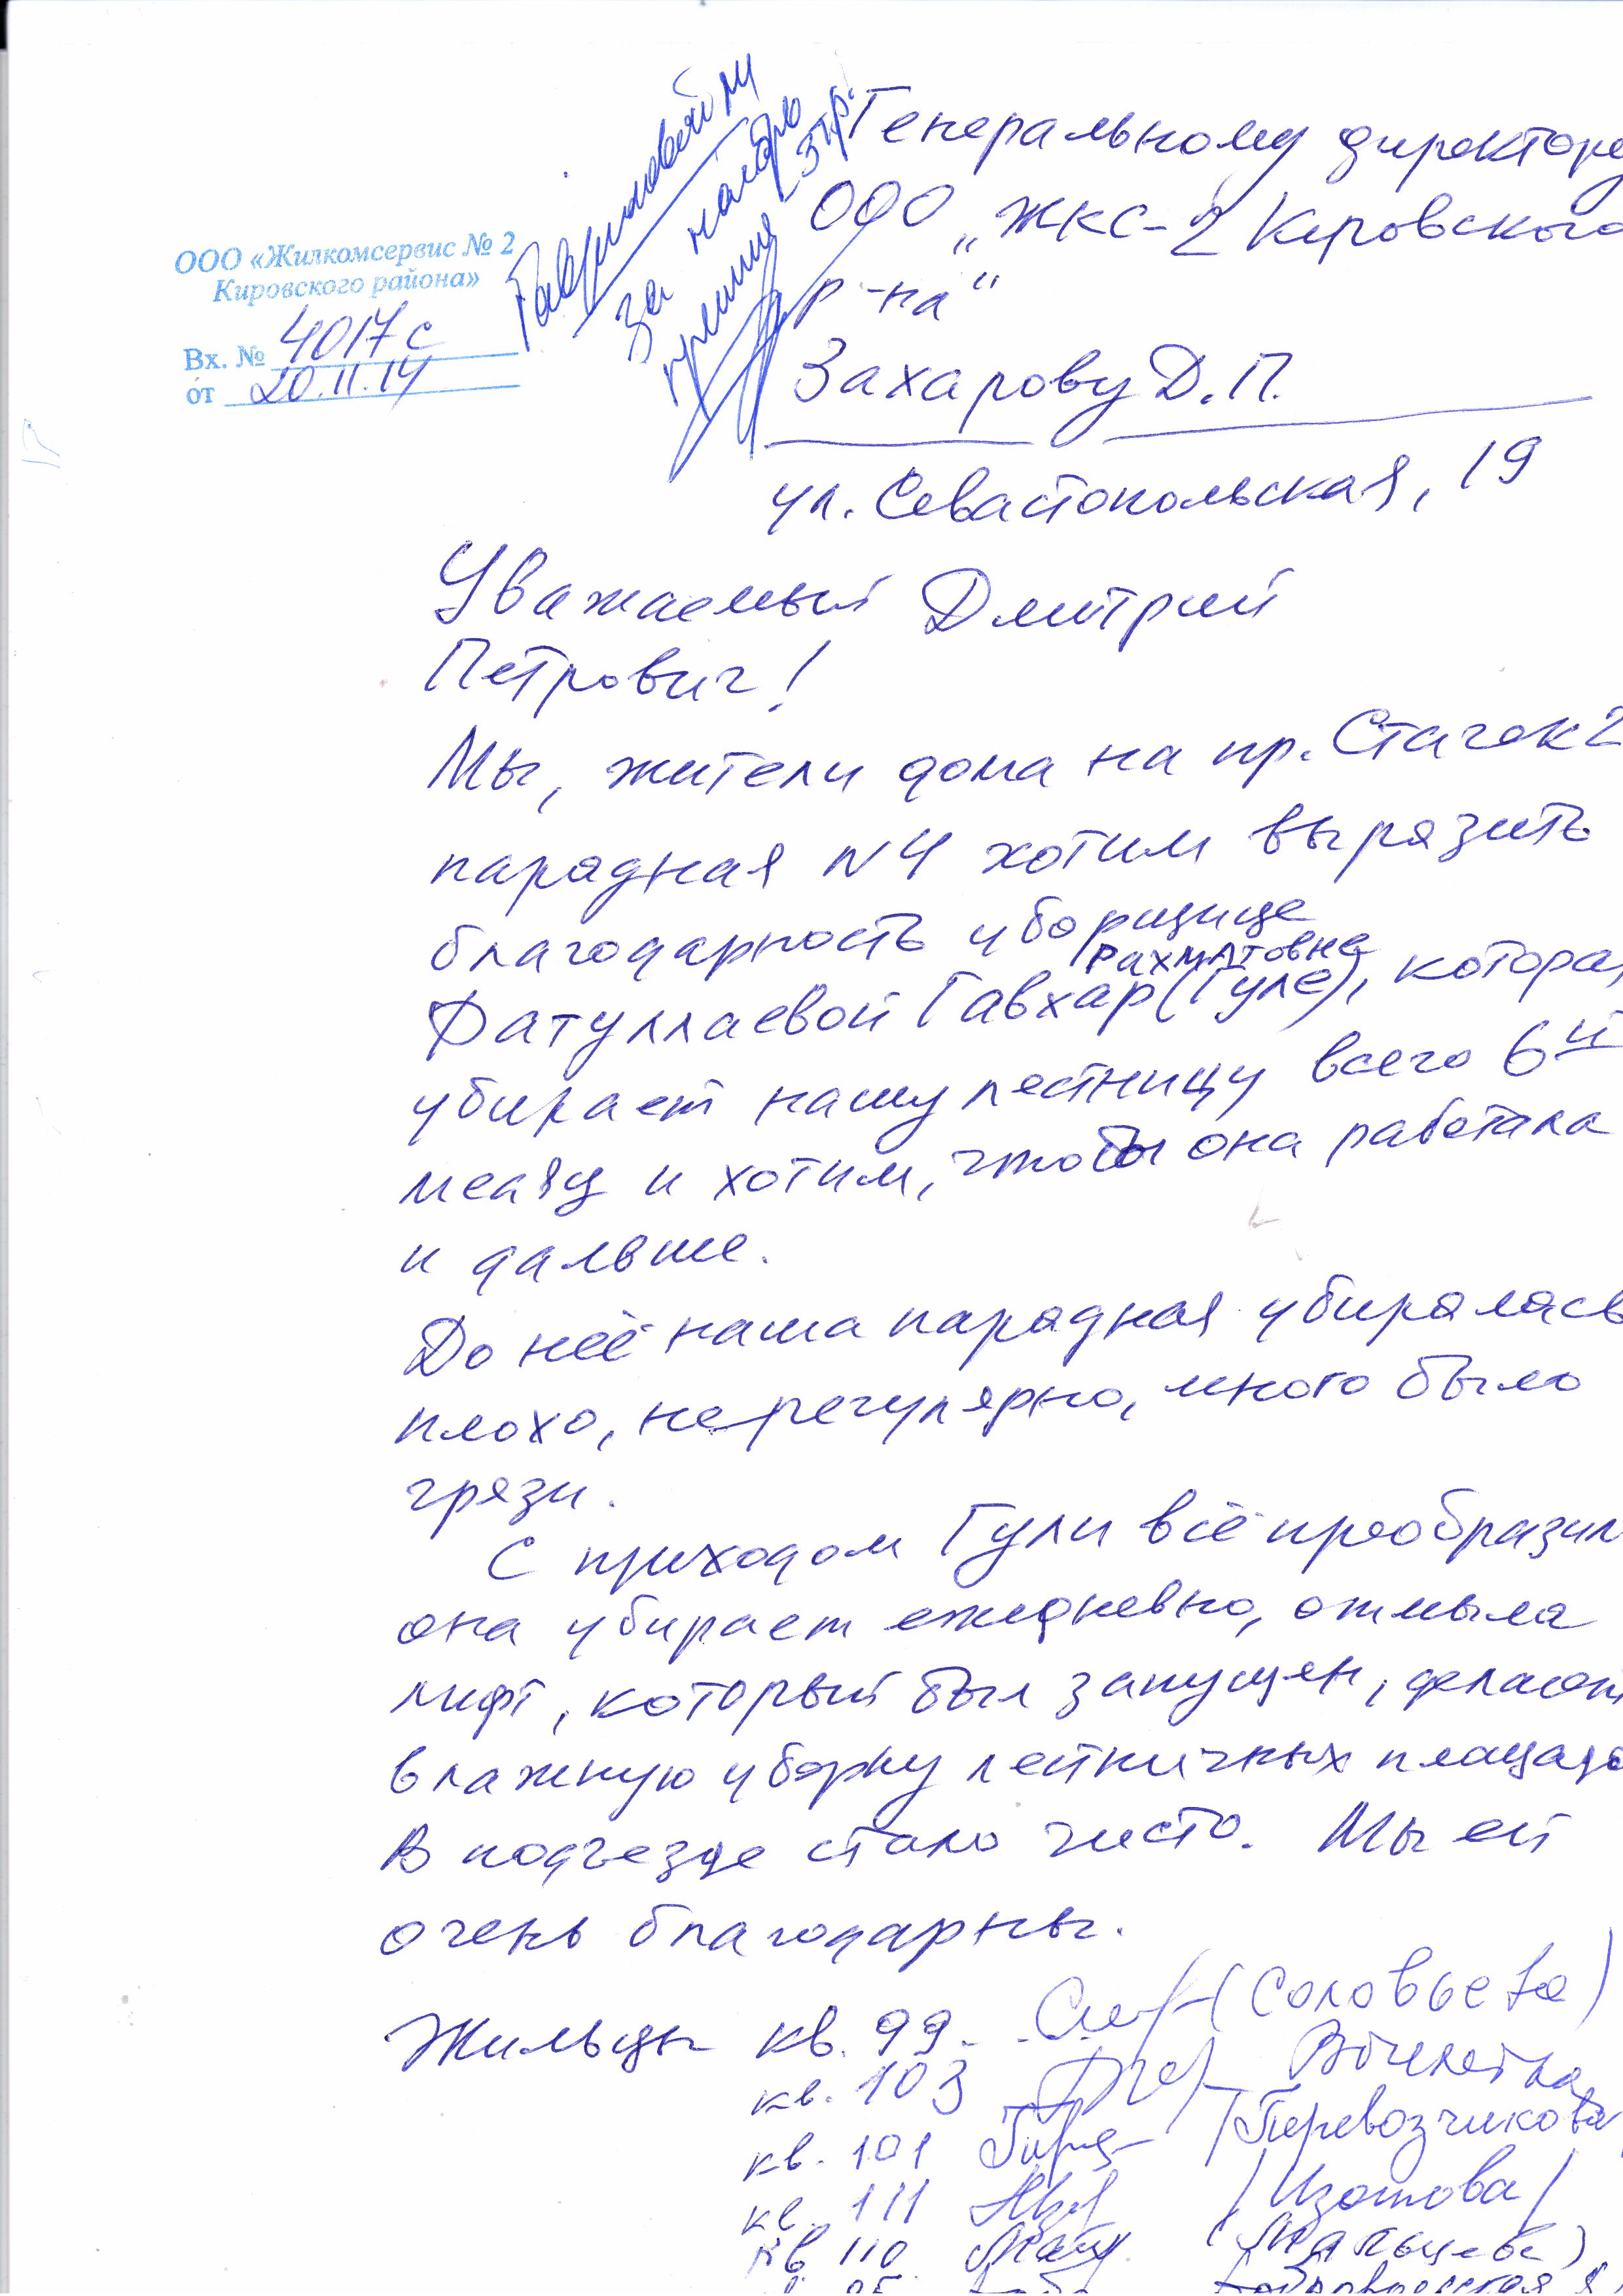 ООО «Жилкомсервис № 2
Кировского района»
Вх. № 4017 с
от 20.11.14
за
премия 3 тр.
Генеральному директору
ООО „ЖКС-2 Кировского
р-на“
Захарову Д.П.
ул. Севастопольская, 19
Уважаемый Дмитрий
Петрович!
Мы, жители дома на пр. Стачек 2
парадная N 4 хотим выразить
благодарность уборщице
Рахматовне
Фатуллаевой Гавхар (Гуле), котора
убирает нашу лестницу всего 6й
месяц и хотим, чтобы она работала
и дальше.
До неё наша парадная убиралась
плохо, не регулярно, много было
грязи.
С приходом Гули всё преобразил
она убирает ежедневно, отмыла
лифт, который был запущен, делает
влажную уборку лестничных площадо
В подъезде стало чисто. Мы ей
очень благодарны.
Жильцы кв. 99 (Соловьева)
кв. 103
кв. 101 /Перевозчикова
кв. 111 /Изотова/
кв 110 (Мальцева)